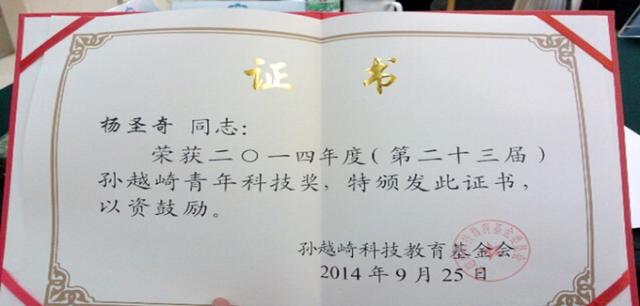 证书
杨圣奇 同志：
荣获二〇一四年度（第二十三届）
孙越崎青年科技奖，特颁发此证书，
以资鼓励。
孙越崎科技教育基金会
2014年9月25日